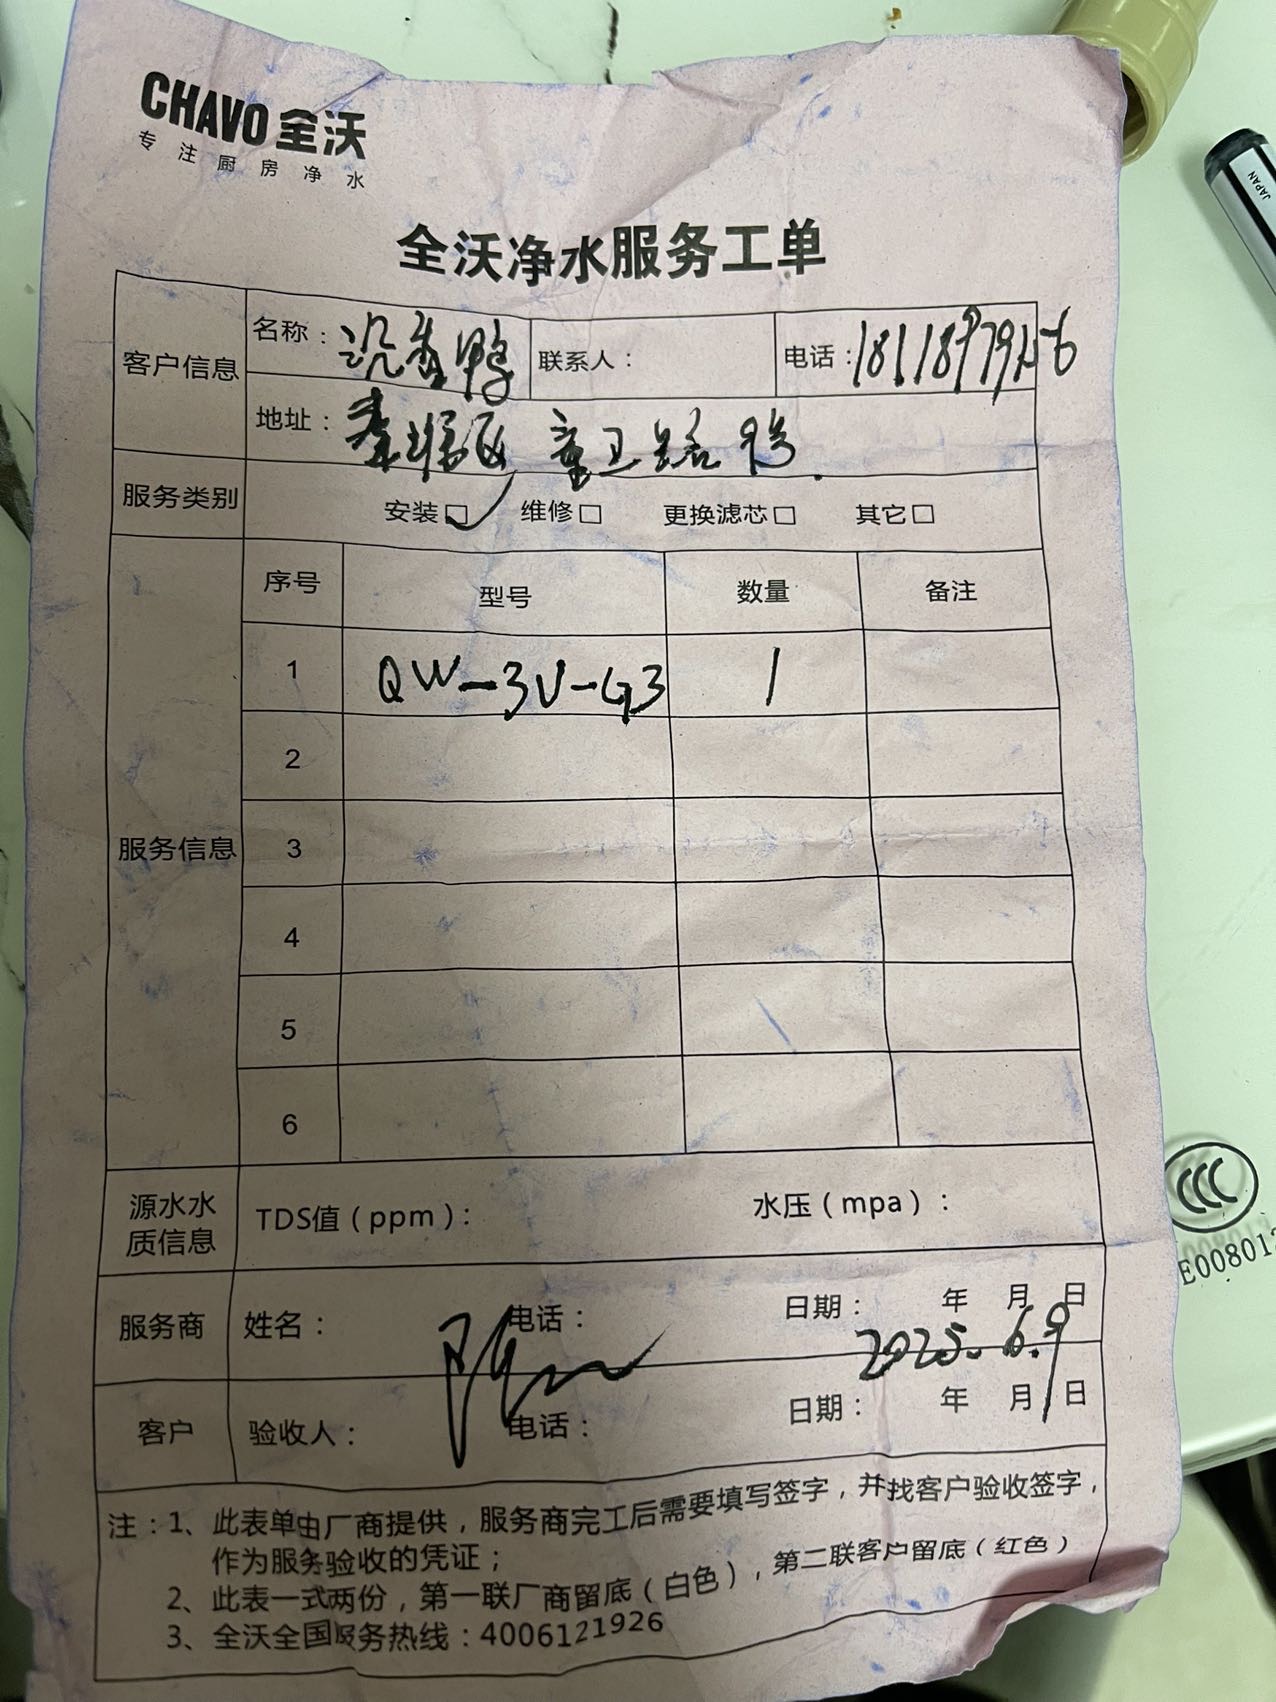 CHAVO 全沃
专注厨房净水
全沃净水服务工单
客户信息
名称：鸭
联系人：
电话：
地址：路9号
服务类别
安装□ 维修□ 更换滤芯□ 其它□
服务信息
序号 型号 数量 备注
1 QW-3V-G3 1
2
3
4
5
6
源水水质信息
TDS值（ppm）： 水压（mpa）：
服务商 姓名： 电话： 日期： 年 月 日
2025.6.9
客户 验收人： 电话： 日期： 年 月 日
注：1、此表单由厂商提供，服务商完工后需要填写签字，并找客户验收签字，
作为服务验收的凭证；
2、此表一式两份，第一联厂商留底（白色），第二联客户留底（红色）
3、全沃全国服务热线：4006121926
JAPAN
CCC